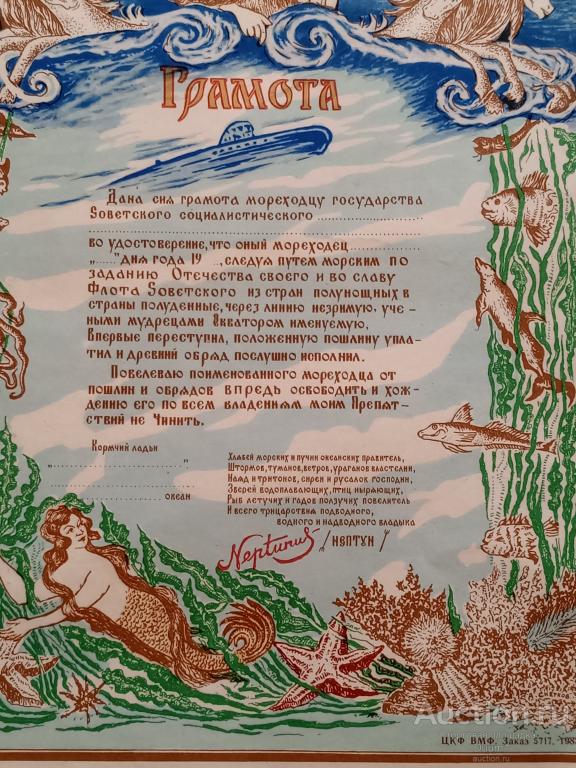 Грамота
Дана сия грамота мореходцу государства
Sоветского социалистического ........................
...............................................................
во удостоверение, что оный мореходец..................
„......"дня года 19..., следуя путем морским по
заданию Отечества своего и во славу
Флота Sоветского из стран полунощных в
страны полуденные, через линию незримую, уче-
ными мудрецами Экватором именуемую,
Впервые переступил, положенную пошлину упла-
тил и древний обряд послушно исполнил.
Повелеваю поименованного мореходца от
пошлин и обрядов впредь освободить и хож-
дению его по всем владениям моим Препят-
ствий не Чинить.
Кормчий ладьи
„..............................."
............................... океан
Хлябей морских и пучин океанских правитель,
Штормов, туманов, ветров, ураганов властелин,
Наяд и тритонов, сирен и русалок господин,
Зверей водоплавающих, птиц ныряющих,
Рыб летучих и гадов ползучих повелитель
И всего трицарствия подводного,
водного и надводного владыка
Neptunus /Нептун/
ЦКФ ВМФ. Заказ 5717, 198
Auction.ru
auction.ru